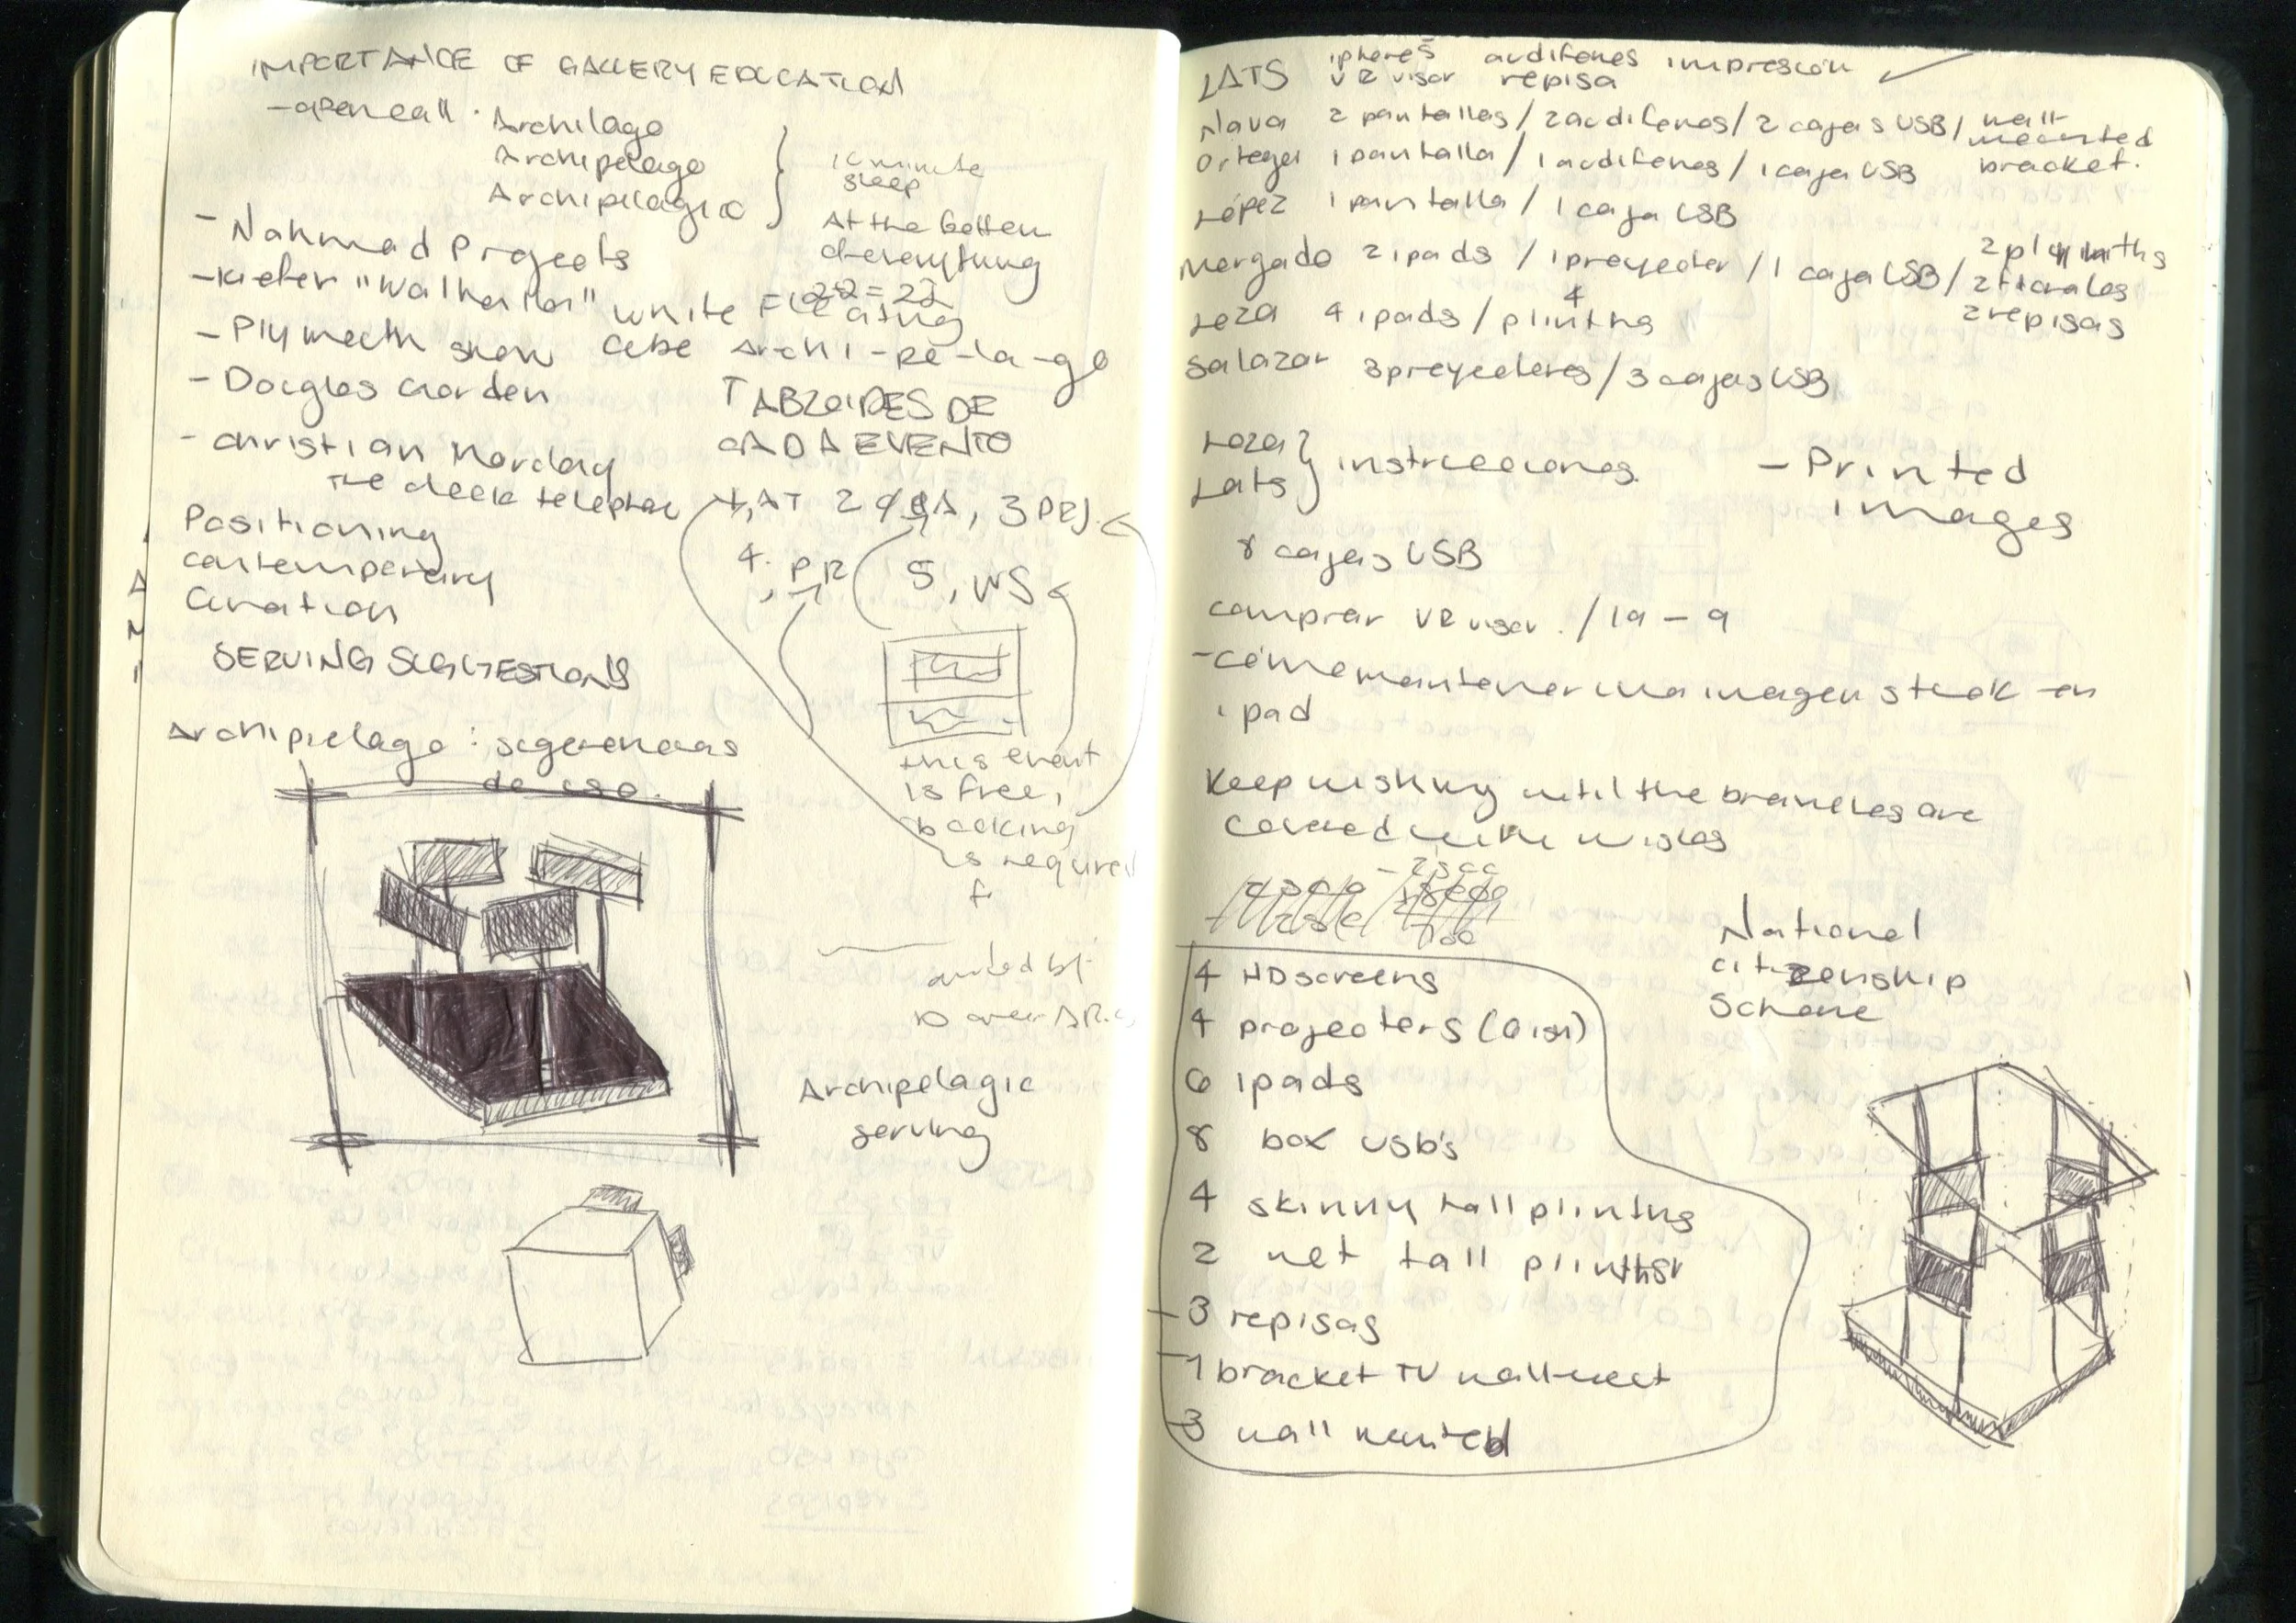 IMPORTANCE OF GALLERY EDUCATION
- open call · Archilago
Archipelago
Archipelagic
10 minute
sleep
At the bottom
of everything
22 = 22
- Nahmad Projects
- Kiefer "Walhalla" white
- Plymouth show cube
Floating
Archi-pe-la-go
- Douglas Gordon
- Christian Marclay
The clock telephone
TABLOIDES DE
CADA EVENTO
1, AT 2 Q&A, 3 PRJ.
4. PR 5, WS
Positioning
contemporary
Curation
SERVING SUGGESTIONS
this event
is free,
booking
is required
Archipielago : sugerencias
de uso.
Archipelagic
serving
LATS ipheres audifonos impresión
VR visor repisa
Nava 2 pantallas / 2 audifonos / 2 cajas USB / wall
mounted
bracket.
Ortega 1 pantalla / 1 audifonos / 1 caja USB
López 1 pantalla / 1 caja USB
Morgado 2 ipads / 1 proyector / 1 caja USB / 2 plynths
2 repisas
Loza 4 ipads / 4 plinths
Salazar 3 proyectores / 3 cajas USB
Loza
Lats } instrucciones
- Printed
images
8 cajas USB
comprar VR visor. / 19 - 9
- cómo mantener una imagen stuck en
ipad
Keep wishing until the branches are
covered with wishes
National
citizenship
Scheme
4 HD screens
4 projectors
6 ipads
8 box usb's
4 skinny tall plinths
2 not tall plinths
- 3 repisas
- 1 bracket TV wall
- 3 wall mounted